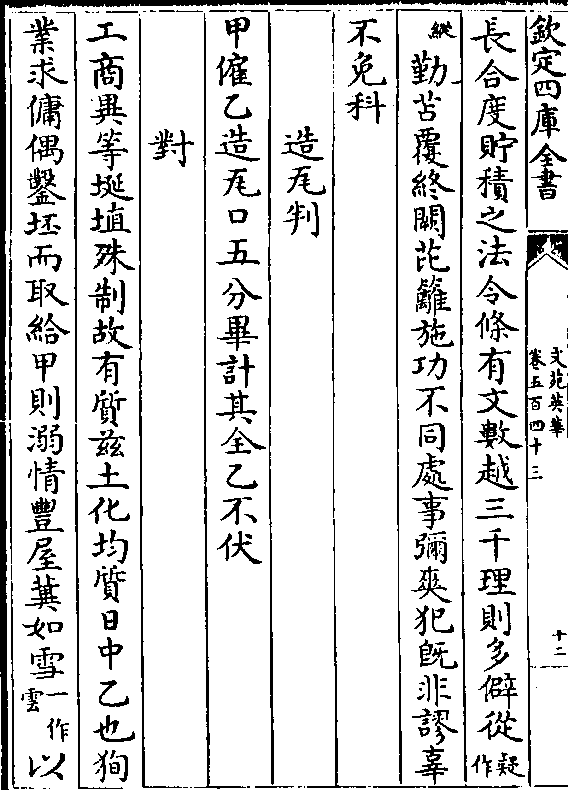 欽定四庫全書
文苑英華
卷五百四十三
十二
長合度貯積之法令條有文數越三千理則多僻從疑作
縱勤苫覆終闕芘籬施功不同處事彌爽犯既非謬辜
不免科
造瓦判
甲僱乙造瓦口五分畢計其全乙不伏
對
工商異等埏埴殊制故有質兹土化均質日中乙也狥
業求傭偶鑿坯而取給甲則溺情豐屋冀如雪一作雲以